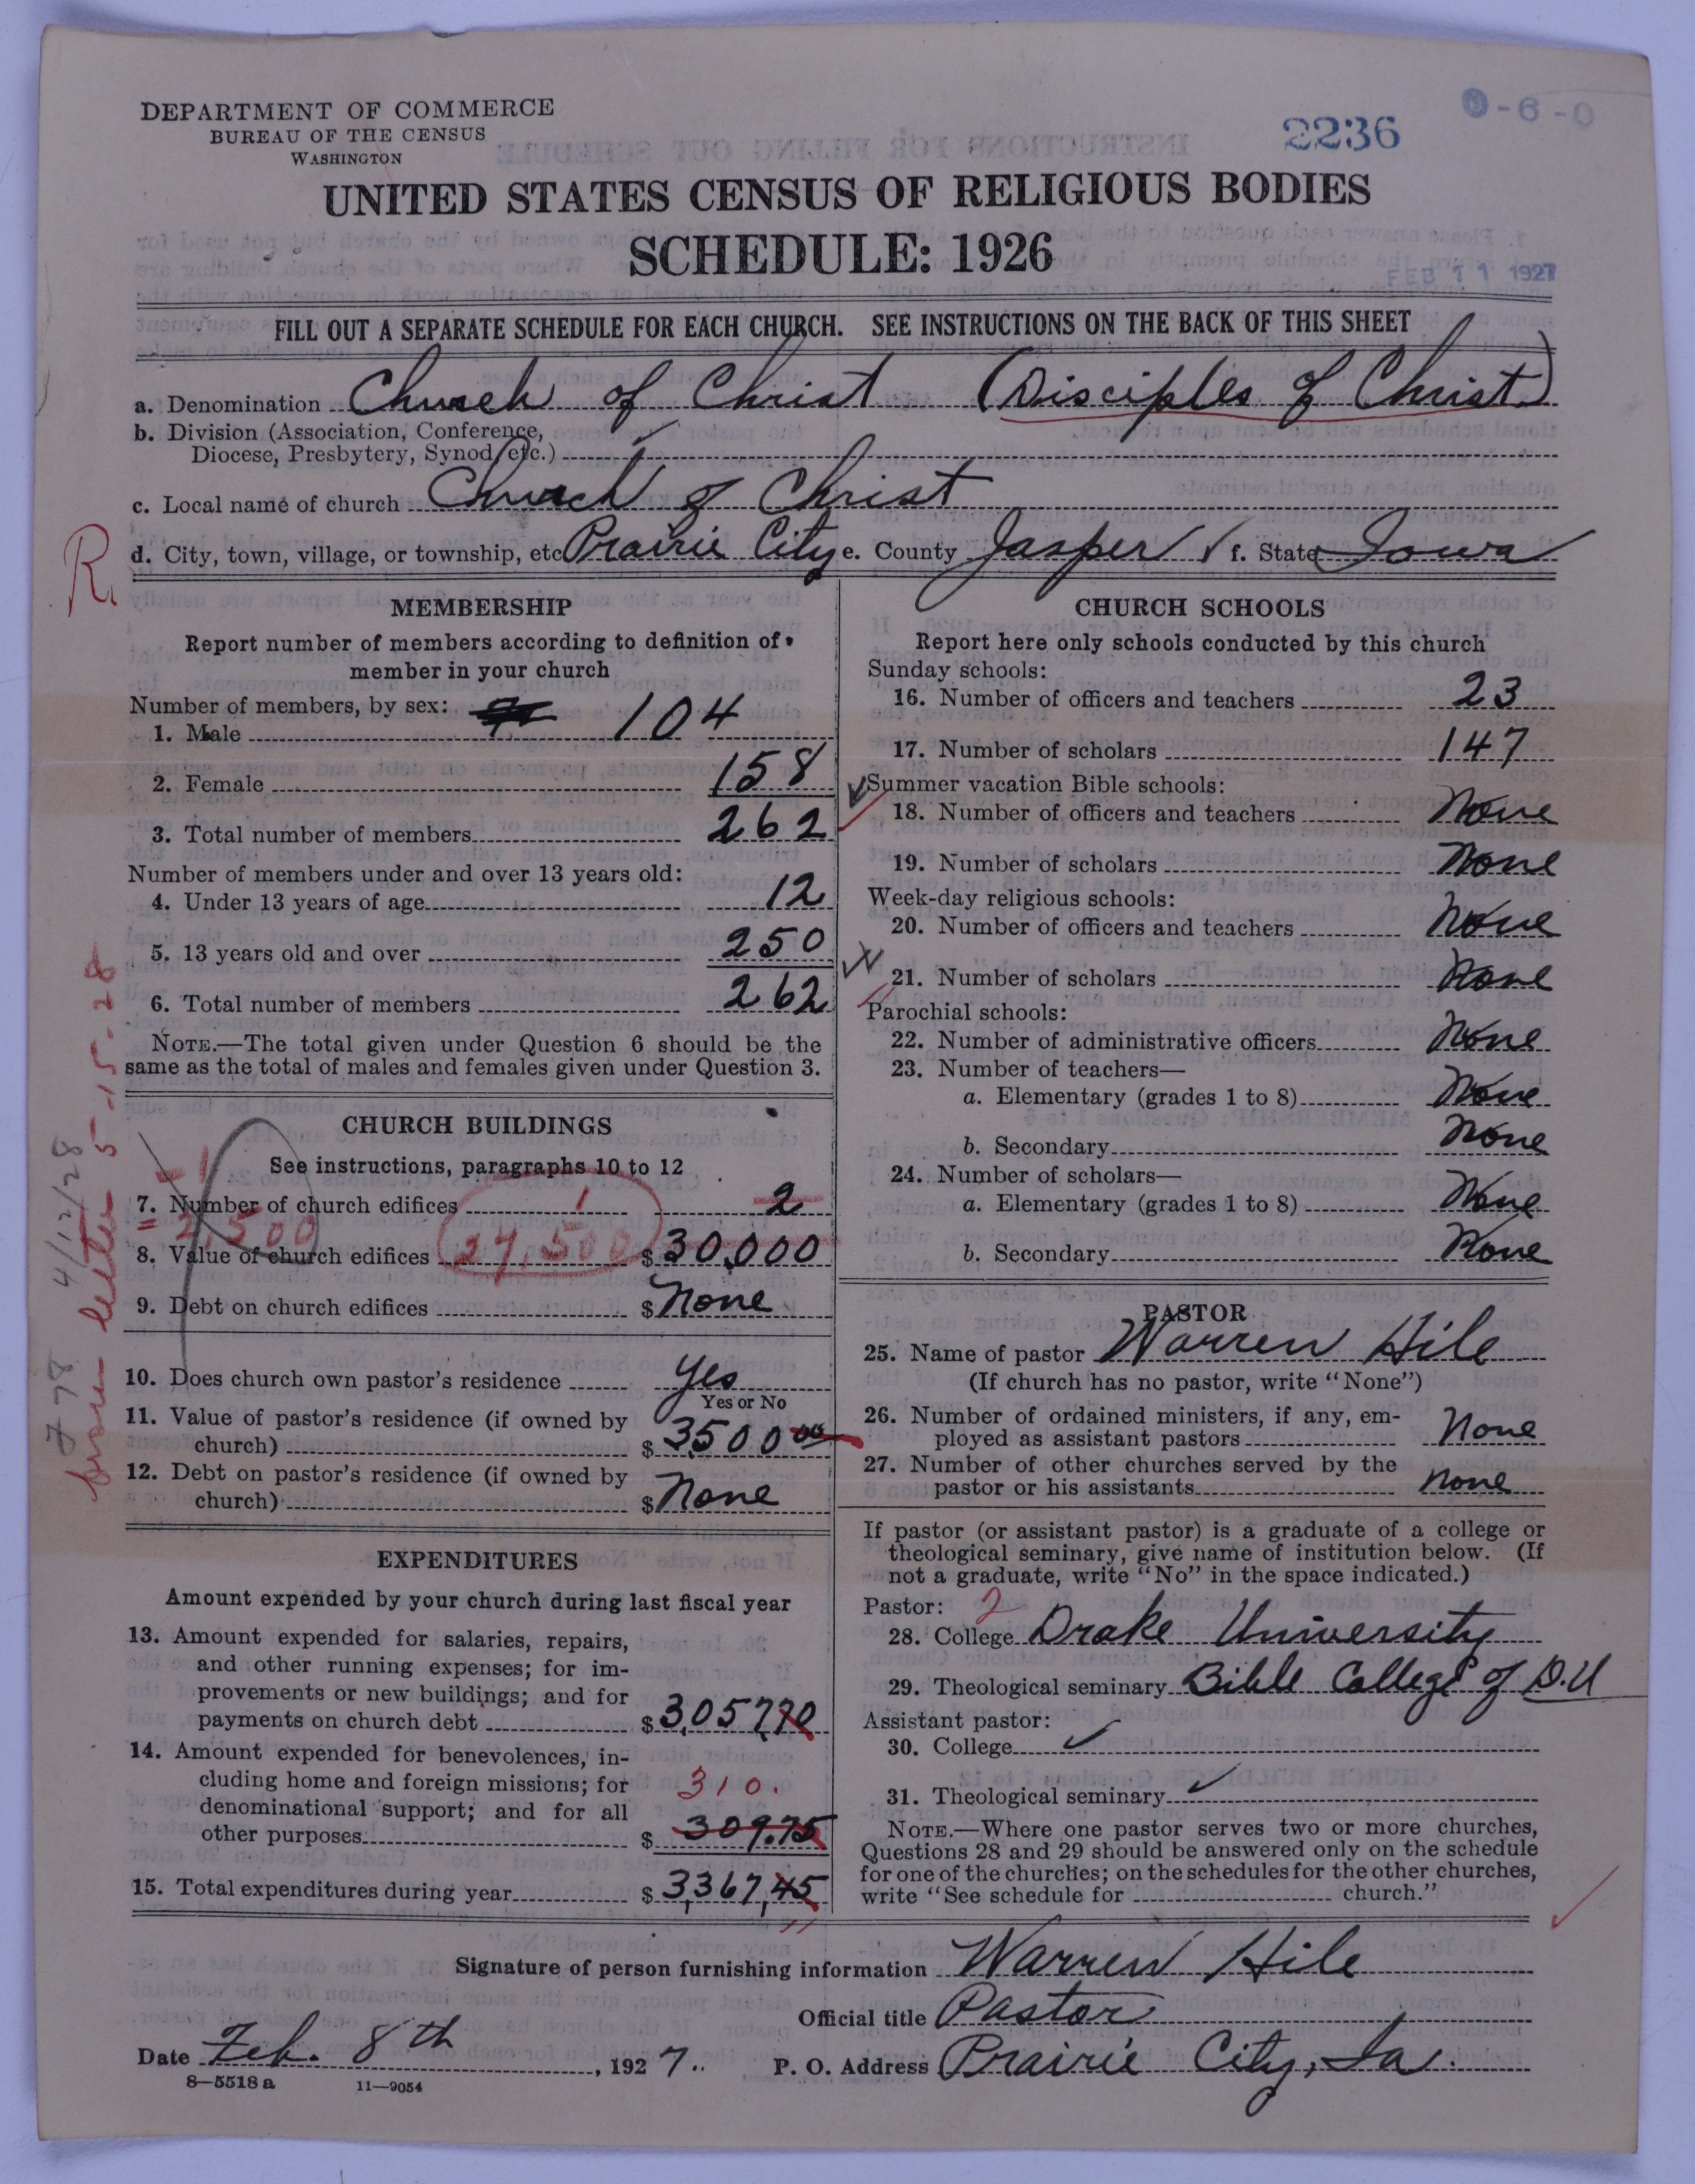 DEPARTMENT OF COMMERCE
BUREAU OF THE CENSUS
WASHINGTON
2236
0-6-0
UNITED STATES CENSUS OF RELIGIOUS BODIES
SCHEDULE: 1926
FEB 11 1927
FILL OUT A SEPARATE SCHEDULE FOR EACH CHURCH. SEE INSTRUCTIONS ON THE BACK OF THIS SHEET
a. Denomination Church of Christ (Disciples of Christ)
b. Division (Association, Conference,
Diocese, Presbytery, Synod, etc.)
c. Local name of church Church of Christ
R
d. City, town, village, or township, etc. Prairie City e. County Jasper f. State Iowa
MEMBERSHIP
Report number of members according to definition of
member in your church
Number of members, by sex:
1. Male 104
2. Female 158
3. Total number of members 262
Number of members under and over 13 years old:
4. Under 13 years of age 12
5. 13 years old and over 250
6. Total number of members 262
NOTE.—The total given under Question 6 should be the
same as the total of males and females given under Question 3.
CHURCH BUILDINGS
See instructions, paragraphs 10 to 12
- 1
7. Number of church edifices 1 2
= 2,500
8. Value of church edifices 27,500 $ 30,000
9. Debt on church edifices $ None
10. Does church own pastor's residence Yes
Yes or No
11. Value of pastor's residence (if owned by
church) $ 3500 00
12. Debt on pastor's residence (if owned by
church) $ None
from letter 5-15-28
778 4/12/28
EXPENDITURES
Amount expended by your church during last fiscal year
13. Amount expended for salaries, repairs,
and other running expenses; for im-
provements or new buildings; and for
payments on church debt $ 3,057.70
14. Amount expended for benevolences, in-
cluding home and foreign missions; for 310.
denominational support; and for all
other purposes $ 309.75
15. Total expenditures during year $ 3,367,45
CHURCH SCHOOLS
Report here only schools conducted by this church
Sunday schools:
16. Number of officers and teachers 23
17. Number of scholars 147
Summer vacation Bible schools:
18. Number of officers and teachers None
19. Number of scholars None
Week-day religious schools:
20. Number of officers and teachers None
21. Number of scholars None
Parochial schools:
22. Number of administrative officers None
23. Number of teachers—
a. Elementary (grades 1 to 8) None
b. Secondary None
24. Number of scholars—
a. Elementary (grades 1 to 8) None
b. Secondary None
PASTOR
25. Name of pastor Warren Hile
(If church has no pastor, write "None")
26. Number of ordained ministers, if any, em-
ployed as assistant pastors None
27. Number of other churches served by the
pastor or his assistants none
If pastor (or assistant pastor) is a graduate of a college or
theological seminary, give name of institution below. (If
not a graduate, write "No" in the space indicated.)
Pastor: 2
28. College Drake University
29. Theological seminary Bible College of D.U
Assistant pastor:
30. College ✓
31. Theological seminary ✓
NOTE.—Where one pastor serves two or more churches,
Questions 28 and 29 should be answered only on the schedule
for one of the churches; on the schedules for the other churches,
write "See schedule for church."
Signature of person furnishing information Warren Hile
Official title Pastor
Date Feb. 8th, 1927. P. O. Address Prairie City, Ia.
8—5518 a 11—9054